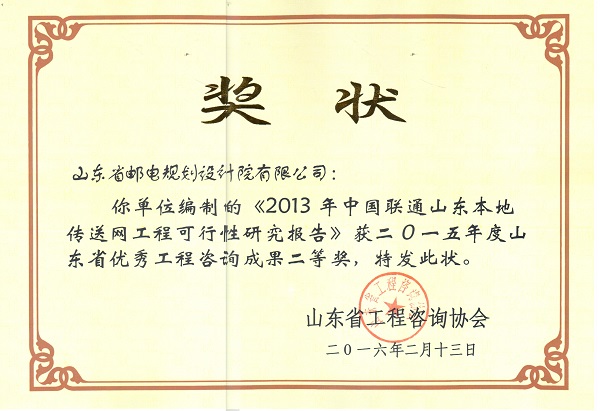 奖 状
山东省邮电规划设计院有限公司：
你单位编制的《2013 年中国联通山东本地
传送网工程可行性研究报告》获二０一五年度山
东省优秀工程咨询成果二等奖，特发此状。
山东省工程咨询协会
二０一六年二月十三日